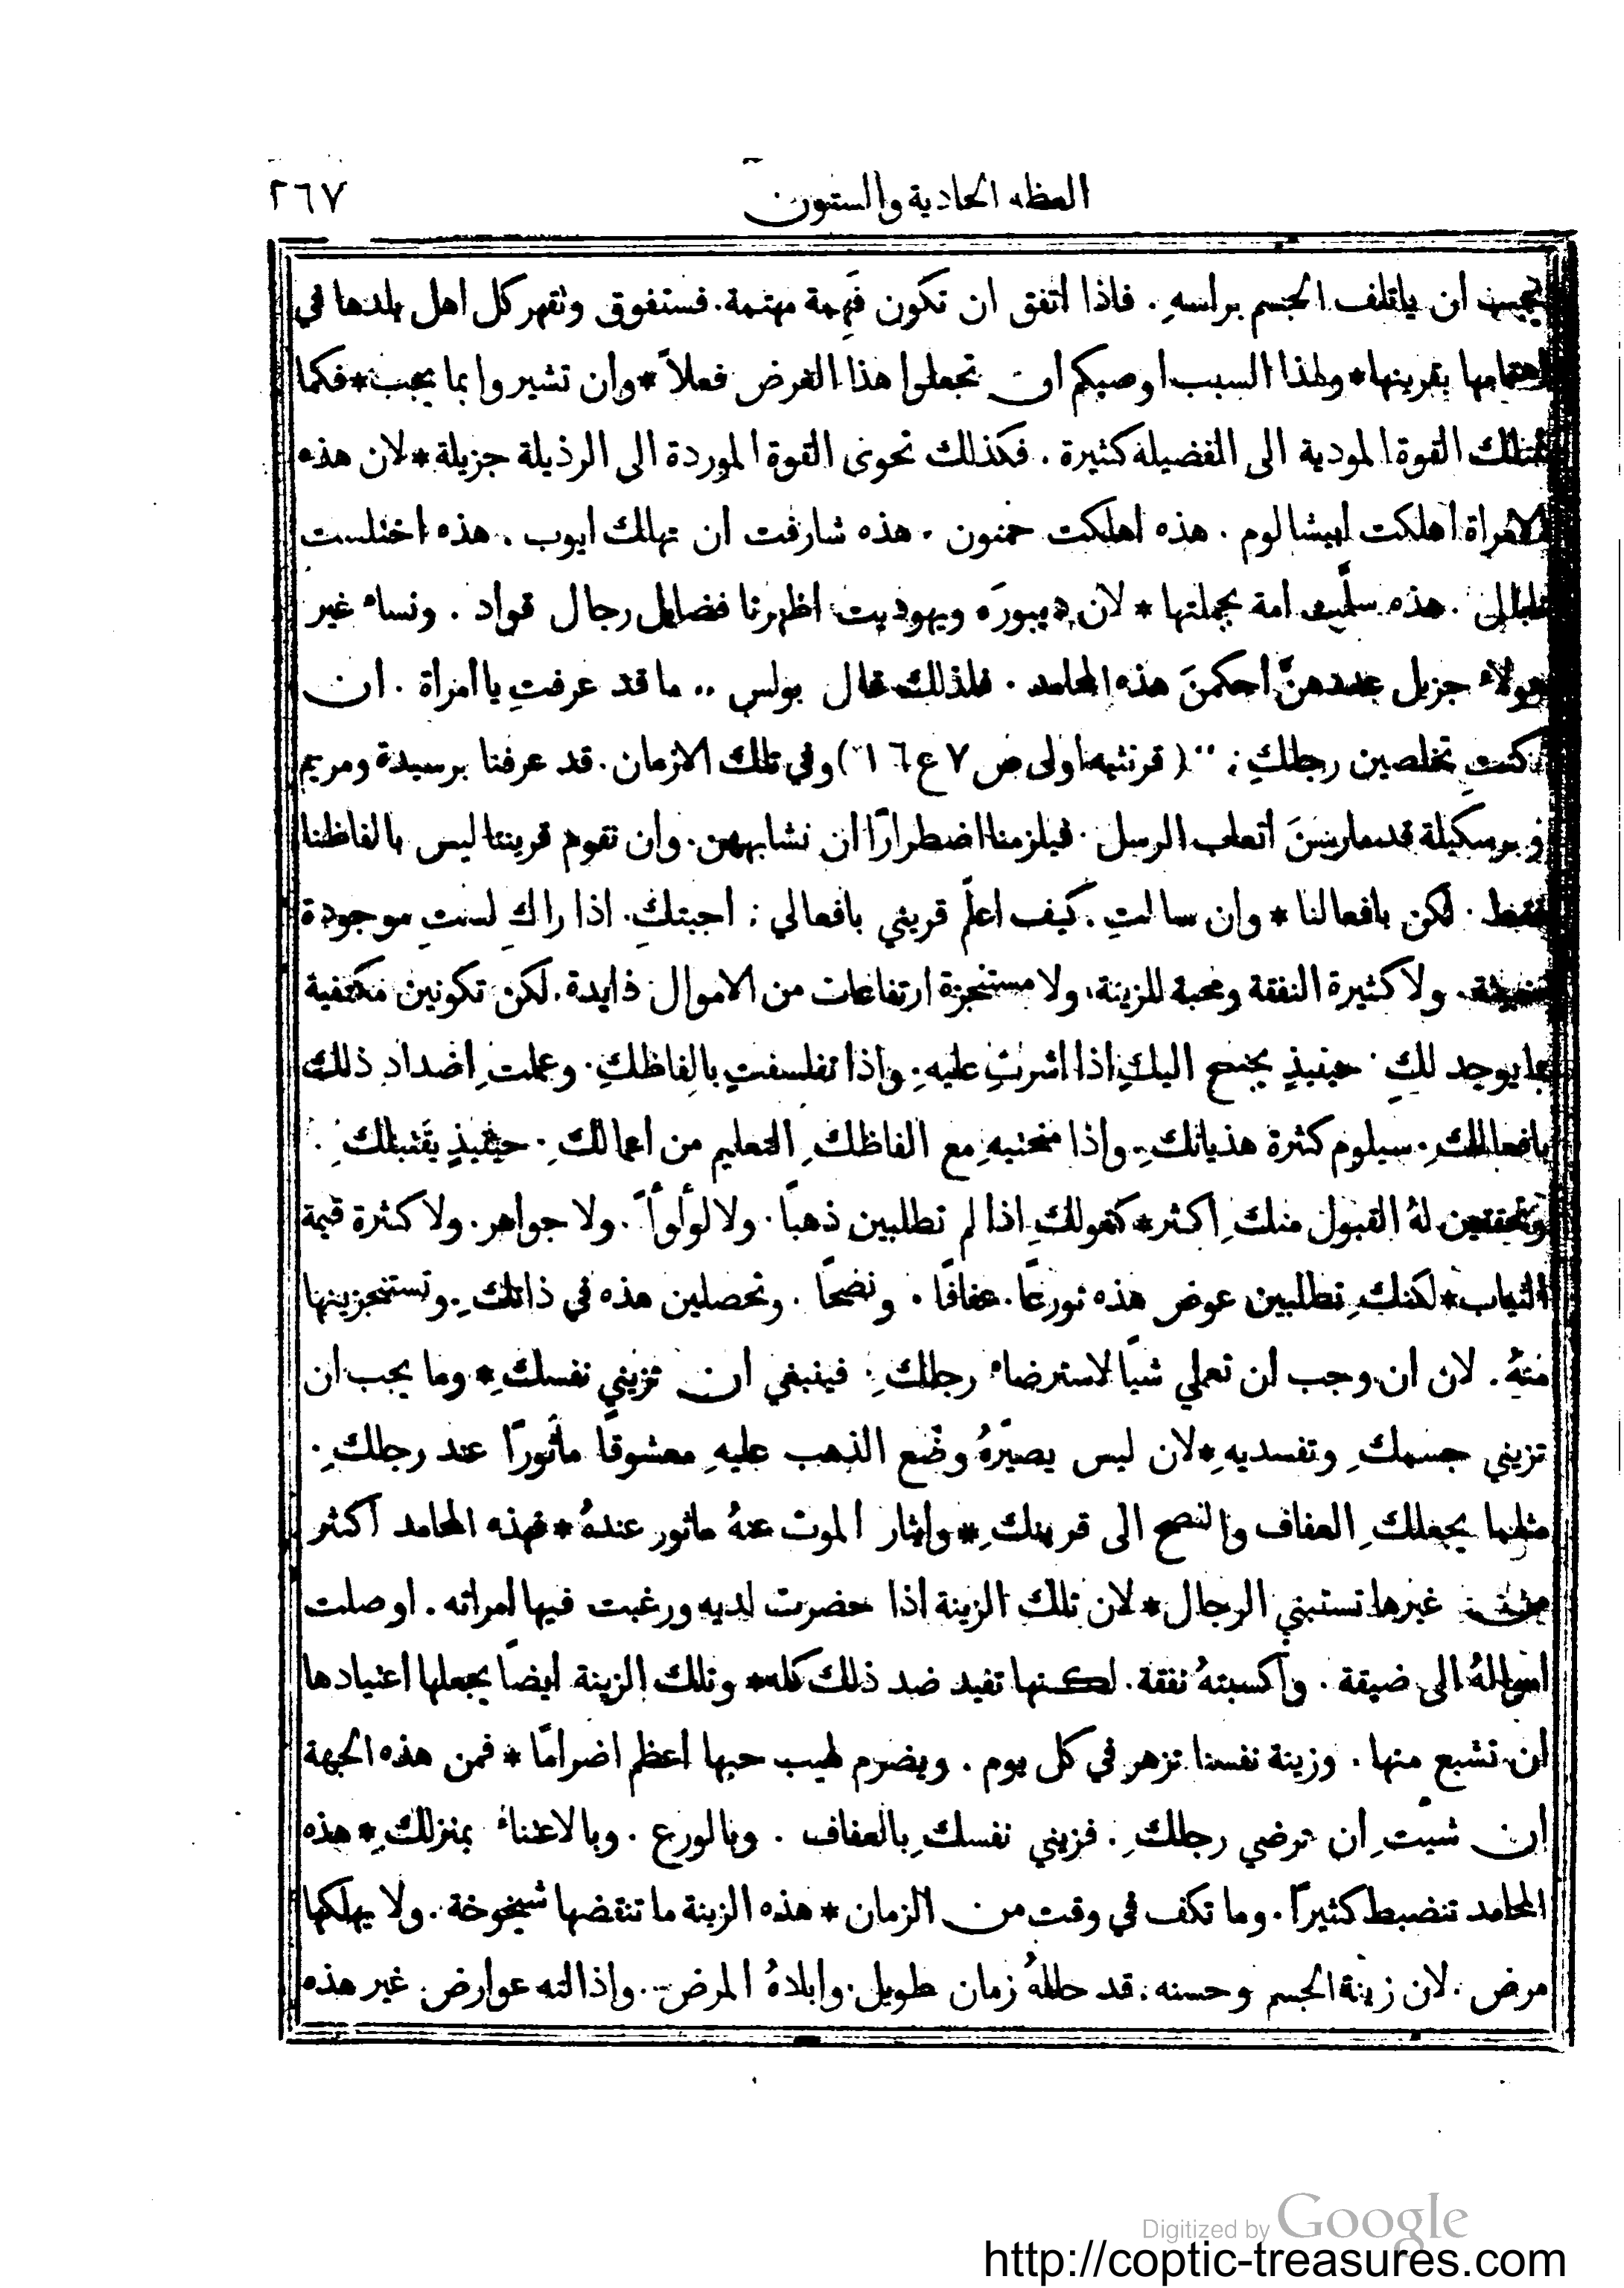 العظه الحادية والستون
٢٦٧
يجب ان ياتلف الجسم براسهِ. فاذا اتفق ان تكون فَهِمة مهتمة. فستفوق وتقهر كل اهل بلدها في
اهتمامها بقرينها * ولهذا السبب اوصيكم ان تجعلوا هذا الغرض فعلاً * وان تشيروا بما يجب * فكما
تمتلك القوة المودية الى الفضيله كثيرة. فكذلك تحوى القوة الموردة الى الرذيلة جزيلة * لان هذه
الامراة اهلكت ابيشالوم. هذه اهلكت حمنون. هذه شارفت ان تهالك ايوب. هذه اختلست
هذه سلَّمت امة بجملتها * لان ديبورَه ويهوديت اظهرنا فضايل رجال قواد. ونساء غير
هولاء جزيل عددهنَّ احكمنَ هذه المحامد. فلذلك قال بولس ,, ما قد عرفتِ يا امراة. ان
كنتِ تخلصين رجلكِ; ,, (قرنثيه اولى ص ٧ ع ١٦) وفي تلك الازمان. قد عرفنا برسيدة ومريم
وبرسكيلة قد مارسنَ اتعاب الرسل. فيلزمنا اضطرارًا ان نشابههن. وان نقوم قريننا ليس بالفاظنا
فقط. لكن بافعالنا * وان سالتِ. كيف اعلّم قريني بافعالي; اجبتكِ. اذا راكِ لستِ موجودة
ولا كثيرة النفقة ومحبة للزينة، ولا مستنجزة ارتفاعات من الاموال زايدة. لكن تكونين مكتفية
بما يوجد لكِ. حينيذٍ يجنح اليكِ اذا اشرتِ عليهِ. واذا تفلسفتِ بالفاظكِ. وعملتِ اضداد ذلك
بافعالكِ. سيلوم كثرة هذيانكِ. واذا منحتيهِ مع الفاظكِ التعليم من اعمالكِ. حينيذٍ يقتبلكِ.
له القبول منكِ اكثر * كقولكِ اذا لم تطلبين ذهبًا. ولا لولوًا. ولا جواهر. ولا كثرة قيمة
الثياب * لكنكِ تطلبين عوض هذه تورعًا. عفافًا. ونصحًا. وتحصلين هذه في ذاتكِ. وتستنجزينها
منهُ. لان ان وجب ان تعملي شيًا لاسترضاء رجلكِ. فينبغي ان تزيني نفسكِ * وما يجب ان
تزيني جسمكِ وتفسديهِ * لان ليس يصيّرهُ وضع الذهب عليهِ معشوقًا ماثورًا عند رجلكِ.
مثلما يجعلكِ العفاف والنصح الى قرينكِ * وايثار الموت عنهُ ماثور عندهُ * فهذه المحامد اكثر
من غيرها تستبني الرجال * لان تلك الزينة اذا حضرت لديه ورغبت فيها امراته. اوصلت
اموالهُ الى ضيقة. واكسبتهُ نفقة. لكنها تفيد ضد ذلك كله * وتلك الزينة ايضًا يجعلها اعتيادها
ان تشبع منها. وزينة نفسنا تزهر في كل يوم. ويضرم لهيب حبها اعظم اضرامًا * فمن هذه الجهة
ان شيتِ ان ترضي رجلكِ. فزيني نفسكِ بالعفاف. وبالورع. وبالاعتناء بمنزلكِ * هذه
المحامد تنضبط كثيرًا. وما تكف في وقت من الزمان * هذه الزينة ما تنقضها شيخوخة. ولا يهلكها
مرض. لان زينة الجسم وحسنه. قد حللهُ زمان طويل. وابلاهُ المرض. واذالته عوارض. غير هذه
Digitized by Google
http://coptic-treasures.com